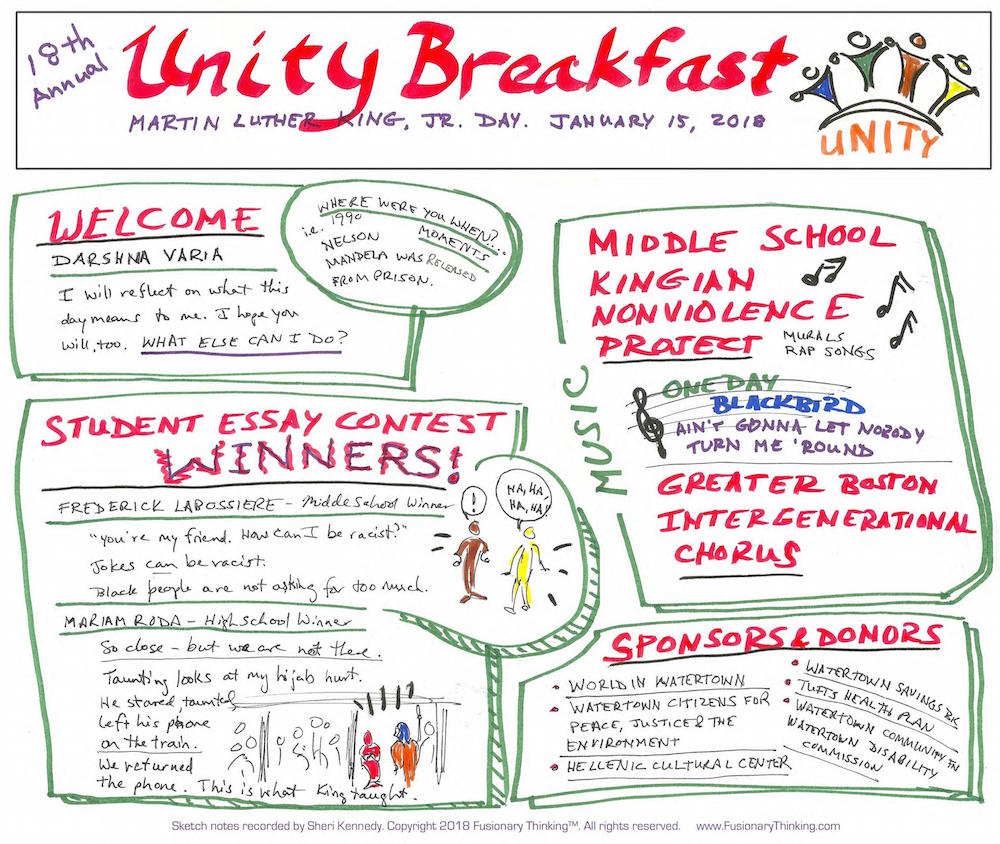 18th
Annual
Unity Breakfast
MARTIN LUTHER KING, JR. DAY. JANUARY 15, 2018
UNITY
WELCOME
DARSHNA VARIA
I will reflect on what this
day means to me. I hope you
will, too. WHAT ELSE CAN I DO?
WHERE WERE YOU WHEN?...
MOMENTS
i.e. 1990
NELSON
MANDELA WAS RELEASED
FROM PRISON.
STUDENT ESSAY CONTEST
WINNERS!
FREDERICK LABOSSIERE - Middle School Winner
"You're my friend. How can I be racist?"
Jokes can be racist.
Black people are not asking for too much.
!
HA, HA,
HA, HA!
MARIAM RODA - High School Winner
So close - but we are not there.
Taunting looks at my hijab hurt.
He stared, taunted
Left his phone
on the train.
We returned
the phone. This is what King taught.
MUSIC
MIDDLE SCHOOL
KINGIAN
NONVIOLENCE
PROJECT
MURALS
RAP SONGS
ONE DAY
BLACKBIRD
AIN'T GONNA LET NOBODY
TURN ME 'ROUND
GREATER BOSTON
INTERGENERATIONAL
CHORUS
SPONSORS & DONORS
• WORLD IN WATERTOWN
• WATERTOWN CITIZENS FOR
PEACE, JUSTICE & THE
ENVIRONMENT
• HELLENIC CULTURAL CENTER
• WATERTOWN SAVINGS BK
• TUFTS HEALTH PLAN
• WATERTOWN COMMUNITY FN
WATERTOWN DISABILITY
COMMISSION
Sketch notes recorded by Sheri Kennedy. Copyright 2018 Fusionary Thinking™. All rights reserved. www.FusionaryThinking.com